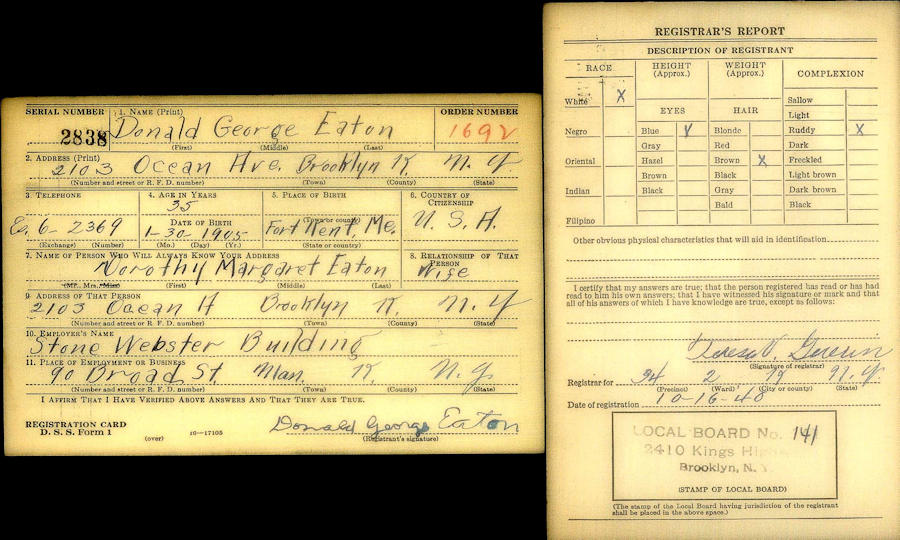 SERIAL NUMBER 1. NAME (Print) ORDER NUMBER
2838 Donald George Eaton 1692
(First) (Middle) (Last)
2. ADDRESS (Print)
2103 Ocean Ave. Brooklyn K. N. Y
(Number and street or R. F. D. number) (Town) (County) (State)
3. TELEPHONE 4. AGE IN YEARS 5. PLACE OF BIRTH 6. COUNTRY OF CITIZENSHIP
35
DATE OF BIRTH (Town or county) U. S. A.
6- 2369 1-30-1905 Fort Kent, Me.
(Exchange) (Number) (Mo.) (Day) (Yr.) (State or country)
7. NAME OF PERSON WHO WILL ALWAYS KNOW YOUR ADDRESS 8. RELATIONSHIP OF THAT PERSON
Dorothy Margaret Eaton Wife
(Mr. Mrs. Miss) (First) (Middle) (Last)
9. ADDRESS OF THAT PERSON
2103 Ocean A Brooklyn K. N. Y
(Number and street or R. F. D. number) (Town) (County) (State)
10. EMPLOYER'S NAME
Stone Webster Building
11. PLACE OF EMPLOYMENT OR BUSINESS
90 Broad St. Man. K. N. Y
(Number and street or R. F. D. number) (Town) (County) (State)
I AFFIRM THAT I HAVE VERIFIED ABOVE ANSWERS AND THAT THEY ARE TRUE.
REGISTRATION CARD
D. S. S. Form 1 (over) 16-17105 Donald George Eaton
(Registrant's signature)
REGISTRAR'S REPORT
DESCRIPTION OF REGISTRANT
RACE HEIGHT (Approx.) WEIGHT (Approx.) COMPLEXION
White X
Negro
Oriental
Indian
Filipino
EYES
Blue
Gray
Hazel
Brown
Black
HAIR
Blonde
Red
Brown X
Black
Gray
Bald
Sallow
Light
Ruddy X
Dark
Freckled
Light brown
Dark brown
Black
Other obvious physical characteristics that will aid in identification
I certify that my answers are true; that the person registered has read or has had
read to him his own answers; that I have witnessed his signature or mark and that
all of his answers of which I have knowledge are true, except as follows:
Teresa V.
(Signature of registrar)
Registrar for 34 2 19 N. Y
(Precinct) (Ward) (City or county) (State)
Date of registration 10-16-40
LOCAL BOARD No. 141
2410 Kings
Brooklyn, N. Y.
(STAMP OF LOCAL BOARD)
(The stamp of the Local Board having jurisdiction of the registrant
shall be placed in the above space.)